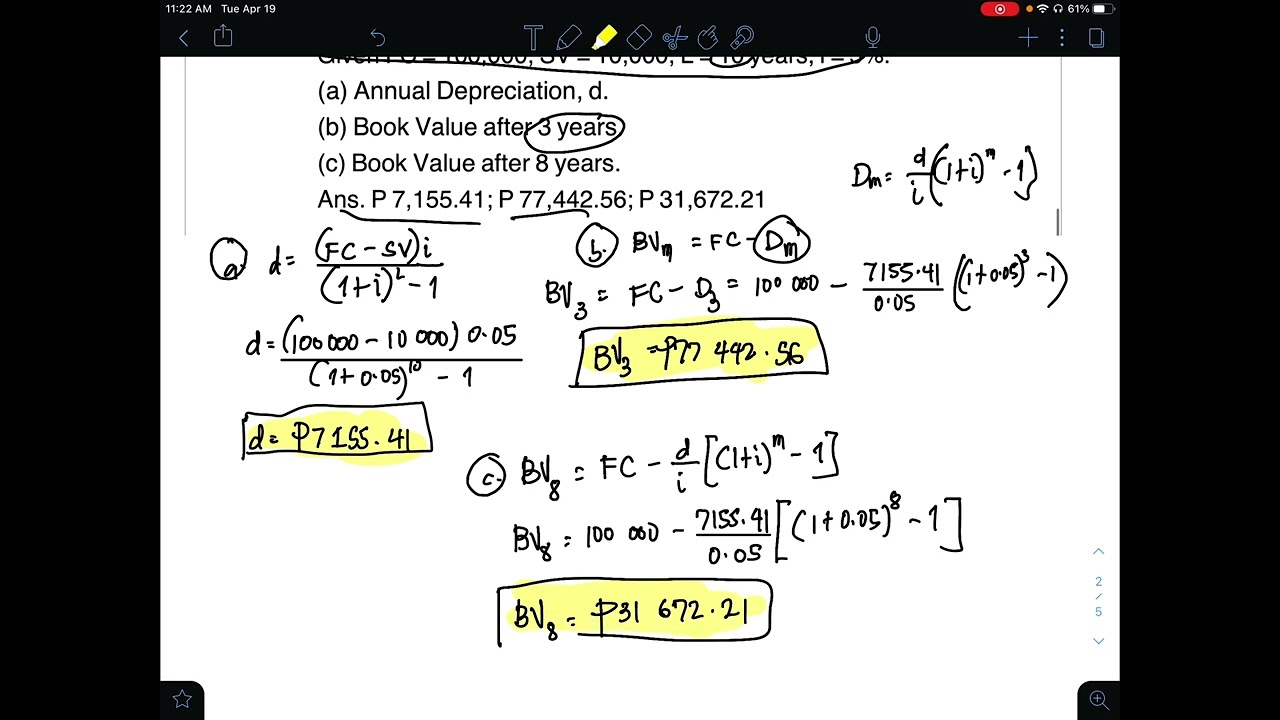 11:22 AM Tue Apr 19
61%
Given FC = 100,000; SV = 10,000; L = 10 years; i = 5%.
(a) Annual Depreciation, d.
(b) Book Value after 3 years
(c) Book Value after 8 years.
Ans. P 7,155.41; P 77,442.56; P 31,672.21
Dm = d/i ((1+i)^m - 1]
a. d = (FC - SV)i / (1+i)^L - 1
d = (100 000 - 10 000) 0.05 / (1+0.05)^10 - 1
d = ₱7155.41
b. BVm = FC - Dm
BV3 = FC - D3 = 100 000 - 7155.41/0.05 ((1+0.05)^3 - 1)
BV3 = ₱77 442.56
c. BV8 = FC - d/i [(1+i)^m - 1]
BV8 = 100 000 - 7155.41/0.05 [(1+0.05)^8 - 1]
BV8 = ₱31 672.21
2
/
5